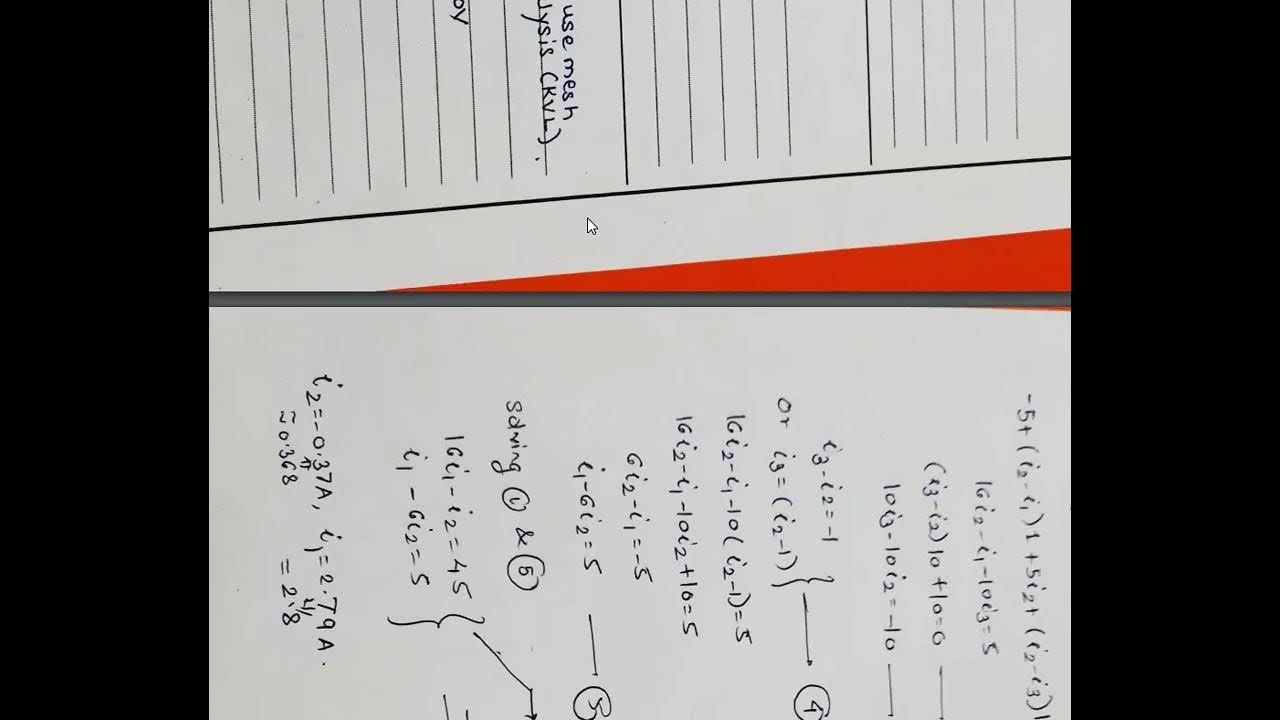 use mesh
lysis (KVL).
oy
-5+(i2-i1)1+5i2+(i2-i3)1
16i2-i1-10i3=5
(i3-i2)10+10=0
10i3-10i2=-10
i3-i2=-1
or i3=(i2-1) } 4
16i2-i1-10(i2-1)=5
16i2-i1-10i2+10=5
6i2-i1=-5
i1-6i2=5 5
Solving 1 & 5
16i1-i2=45
i1-6i2=5 }
i2=-0.37A, i1=2.79A.
≈0.368 =2.8